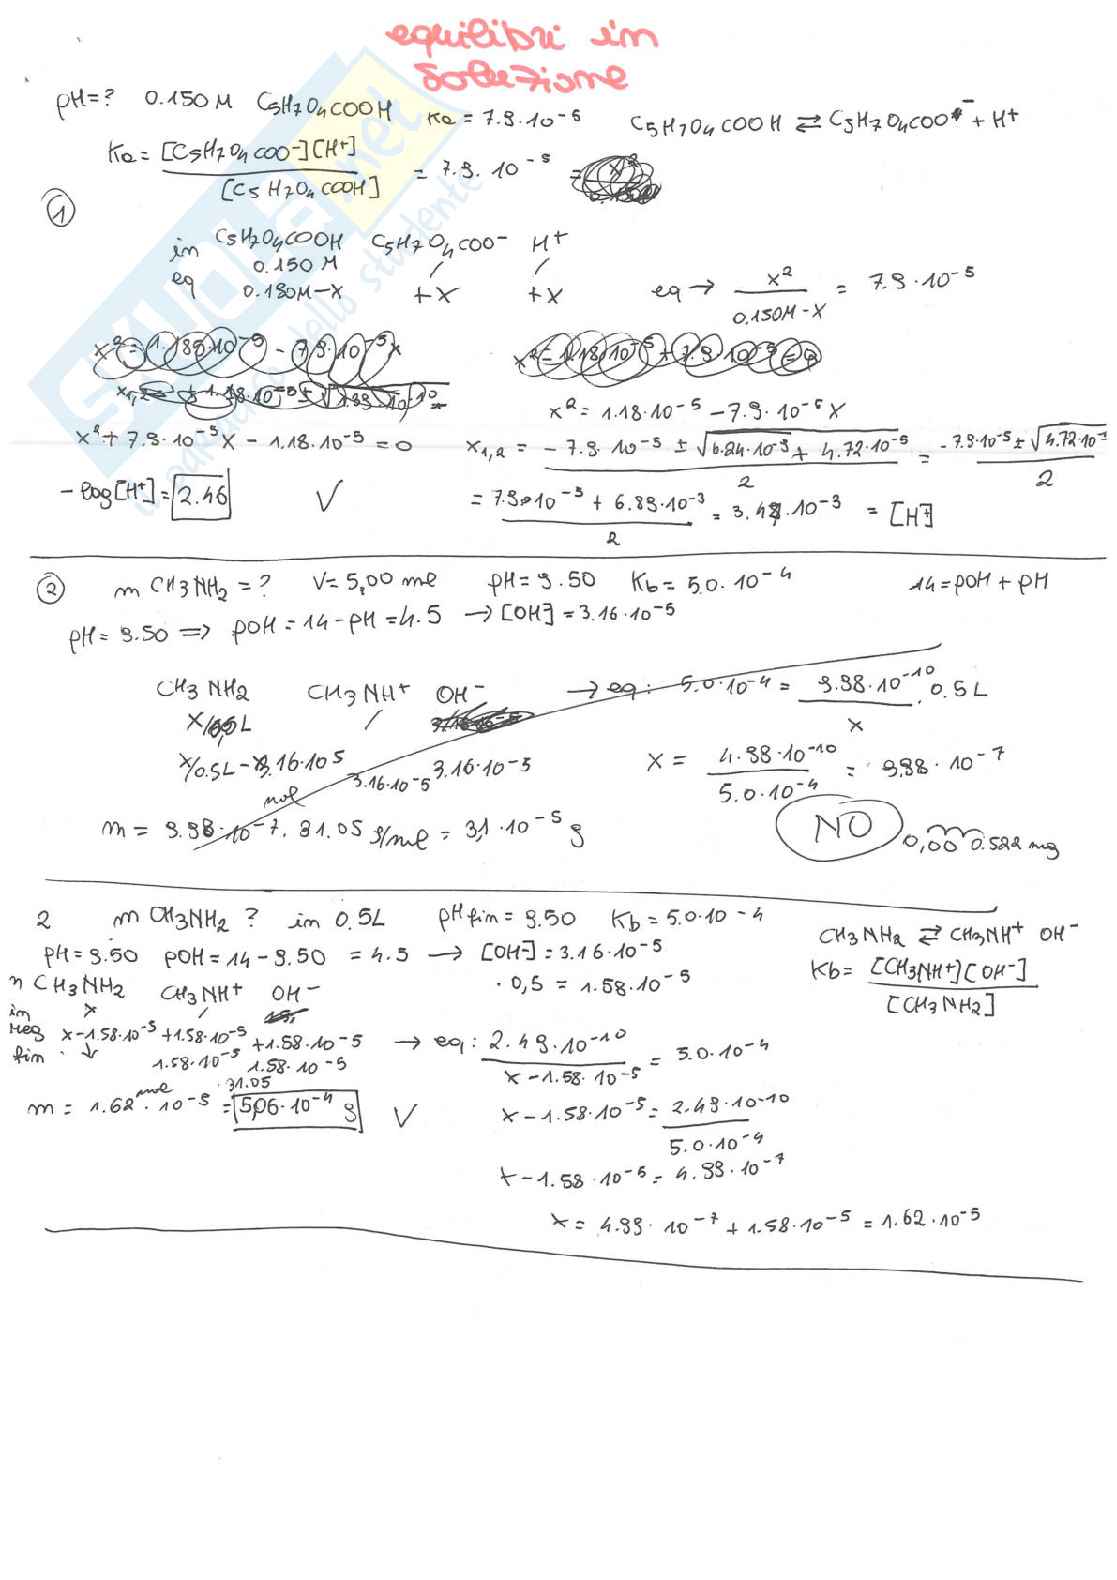 equilibri in
soluzione
pH=? 0.150 M C5H7O4COOH Ka = 7.9·10⁻⁵ C5H7O4COOH ⇄ C5H7O4COO⁻ + H⁺
Ka = [C5H7O4COO⁻][H⁺] / [C5H7O4COOH] = 7.9·10⁻⁵ =
1
C5H7O4COOH C5H7O4COO⁻ H⁺
in 0.150 M / /
eq 0.150M-x +x +x eq → x² / 0.150M-x = 7.9·10⁻⁵
x² = 1.18·10⁻⁵ - 7.9·10⁻⁵x
x² + 7.9·10⁻⁵x - 1.18·10⁻⁵ = 0 x1,2 = -7.9·10⁻⁵ ± √6.24·10⁻⁹ + 4.72·10⁻⁵ / 2 = -7.9·10⁻⁵ ± √4.72·10⁻⁵ / 2
-log[H⁺] = 2.46 √ = 7.9·10⁻⁵ + 6.89·10⁻³ / 2 = 3.48·10⁻³ = [H⁺]
2 m CH3NH2 = ? V = 5,00 ml pH = 9.50 Kb = 5.0·10⁻⁴ 14 = pOH + pH
pH = 9.50 ⇒ pOH = 14 - pH = 4.5 → [OH⁻] = 3.16·10⁻⁵
CH3NH2 CH3NH⁺ OH⁻ → eq: 5.0·10⁻⁴ = 9.98·10⁻¹⁰ / x · 0.5L
x/0,5L /
x/0.5L - 3.16·10⁻⁵ 3.16·10⁻⁵ 3.16·10⁻⁵ x = 4.98·10⁻¹⁰ / 5.0·10⁻⁴ = 9.98·10⁻⁷
m = 9.98·10⁻⁷ mol · 31.05 g/mol = 3,1·10⁻⁵ g NO 0,00 0.522 mg
2 m CH3NH2 ? in 0.5L pH fin = 9.50 Kb = 5.0·10⁻⁴ CH3NH2 ⇄ CH3NH⁺ OH⁻
pH = 9.50 pOH = 14 - 9.50 = 4.5 → [OH⁻] = 3.16·10⁻⁵ Kb = [CH3NH⁺][OH⁻] / [CH3NH2]
n CH3NH2 CH3NH⁺ OH⁻ · 0,5 = 1.58·10⁻⁵
in x /
reag x-1.58·10⁻⁵ +1.58·10⁻⁵ +1.58·10⁻⁵ → eq: 2.49·10⁻¹⁰ / x-1.58·10⁻⁵ = 5.0·10⁻⁴
fin ↓ 1.58·10⁻⁵ 1.58·10⁻⁵
m = 1.62·10⁻⁵ mol · 31.05 = 5,06·10⁻⁴ g √ x-1.58·10⁻⁵ = 2.49·10⁻¹⁰ / 5.0·10⁻⁴
x-1.58·10⁻⁵ = 4.99·10⁻⁷
x = 4.99·10⁻⁷ + 1.58·10⁻⁵ = 1.62·10⁻⁵